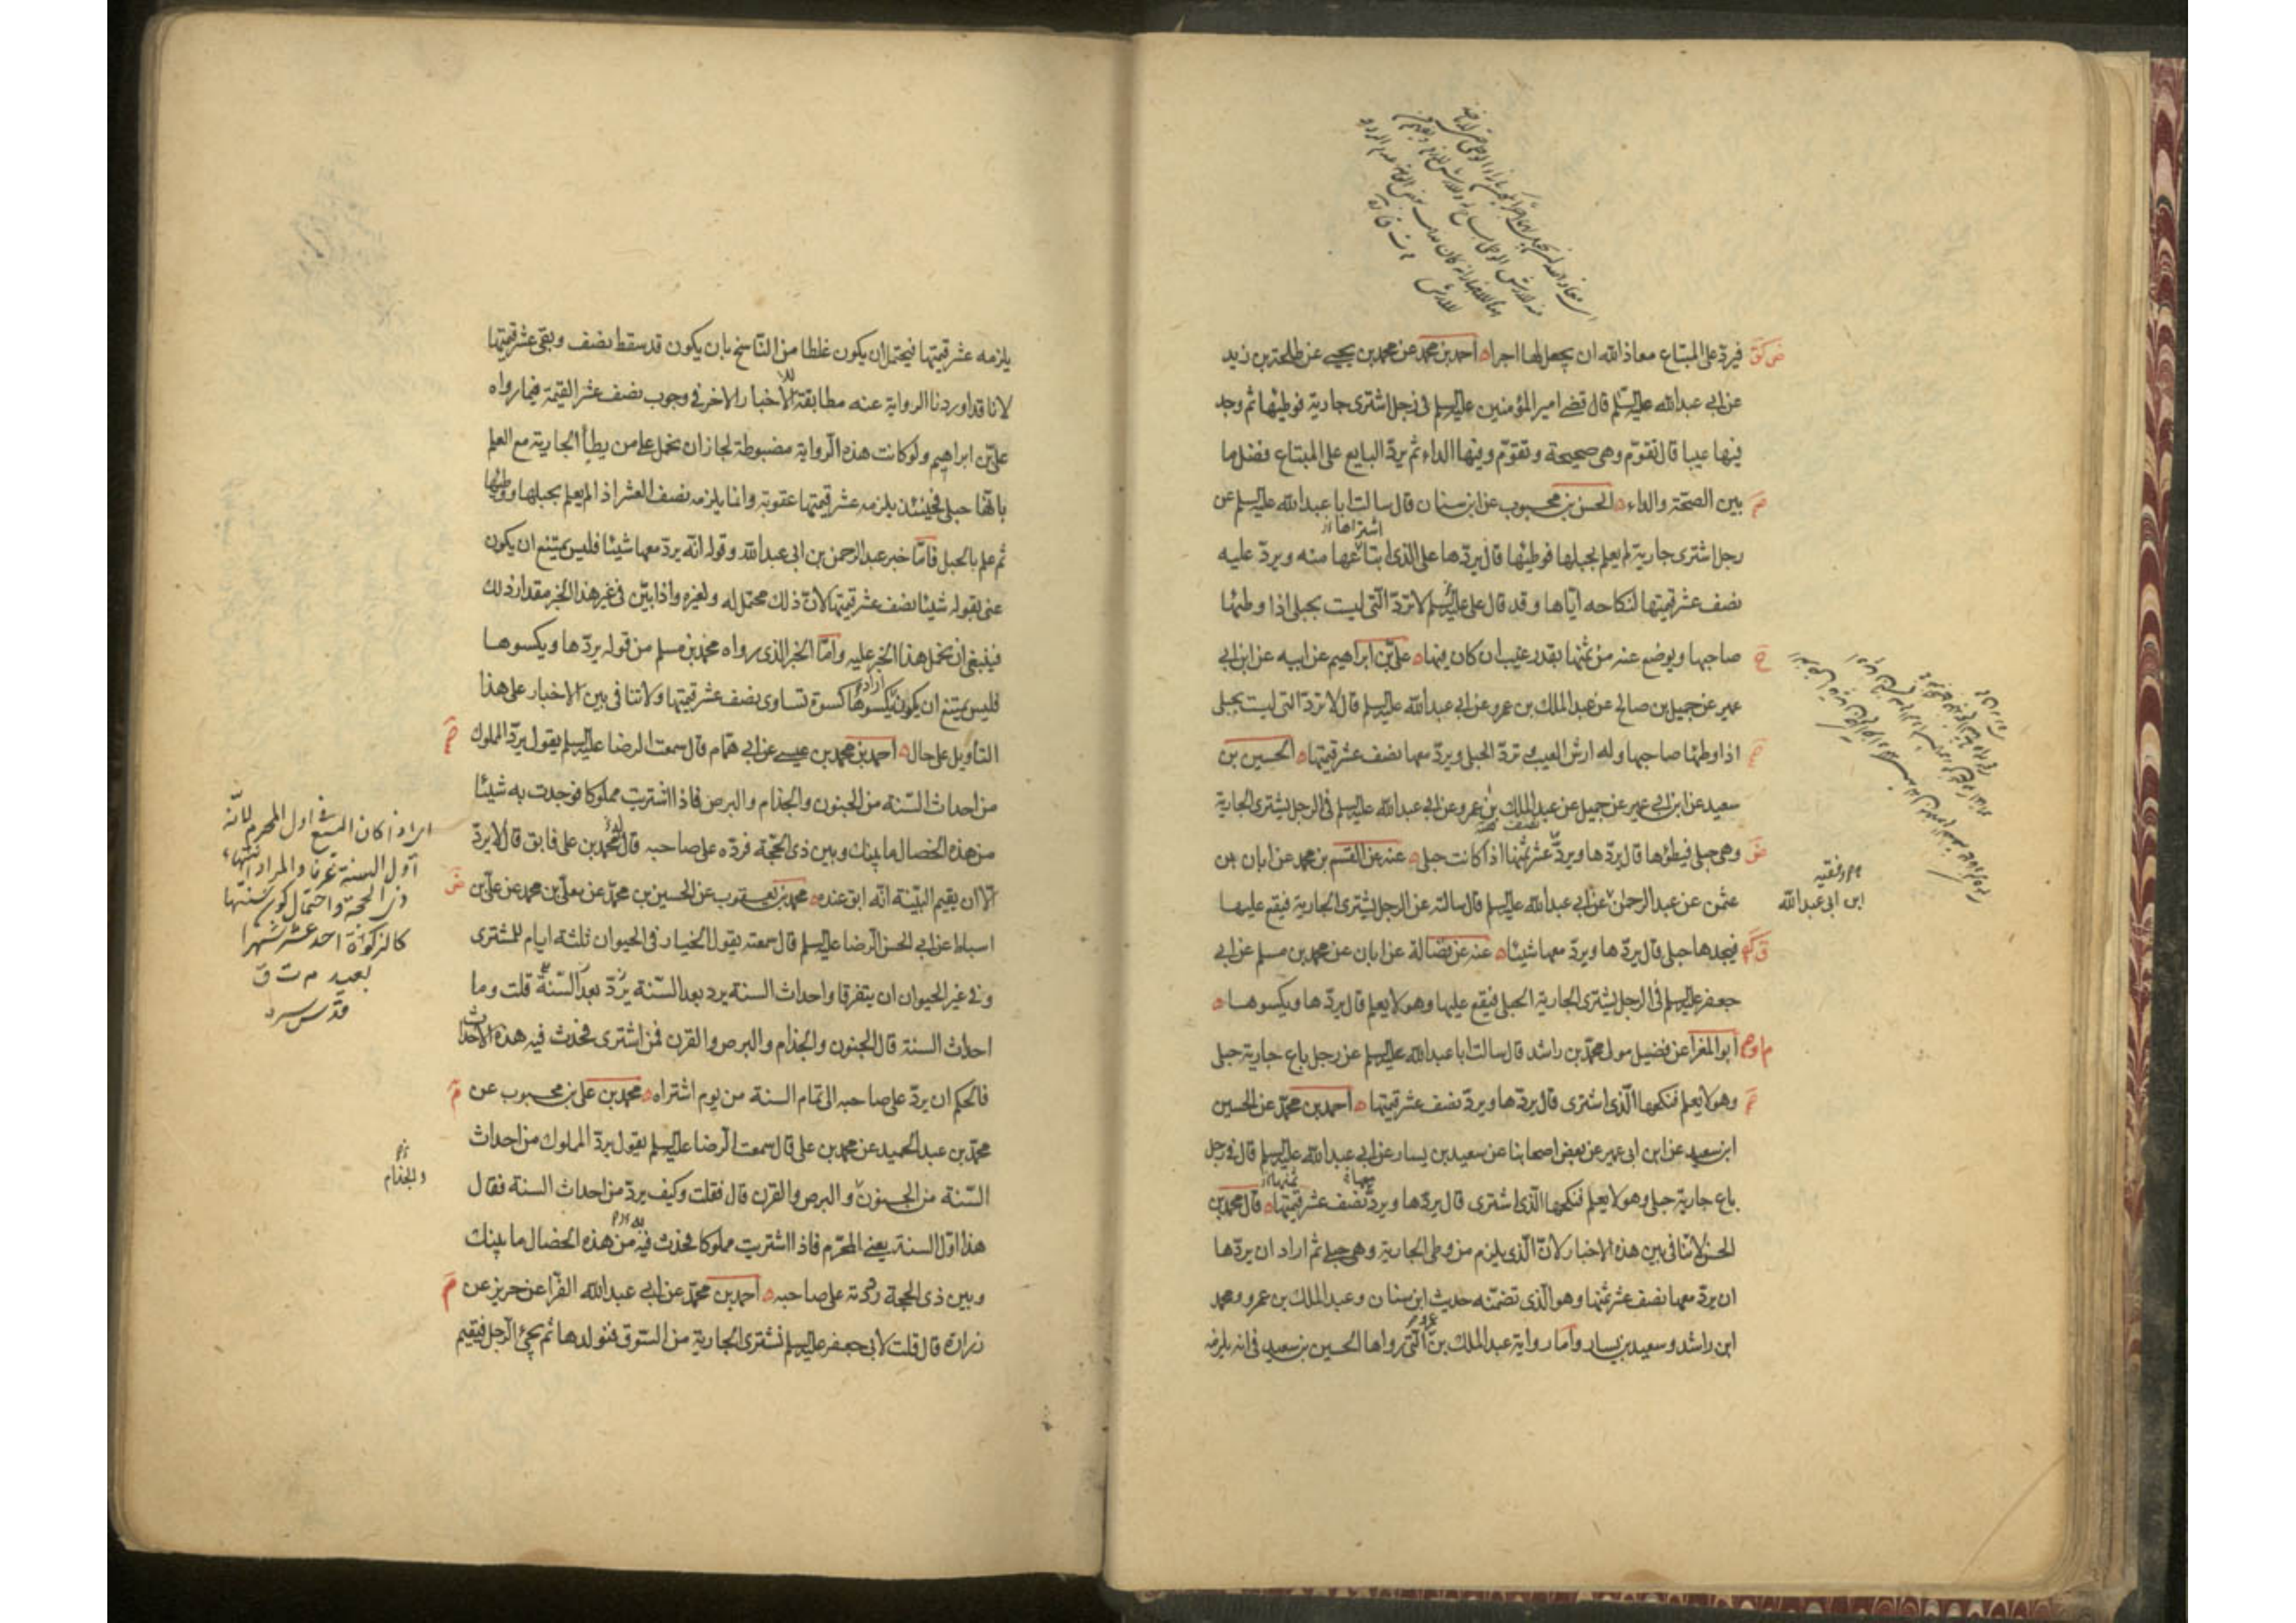 فيردّ على المبتاع معاذ الله ان يجعل لها اجرا ه احمد بن محمد عن محمد بن يحيى عن طلحة بن زيد
عن ابى عبدالله عليه السلم قال قضى امير المؤمنين عليه السلم فى رجل اشترى جارية فوطيها ثم وجد
فيها عيبا قال تقوّم وهى صحيحة وتقوّم وفيها الداء ثم يردّ البايع على المبتاع فضل ما
بين الصحّة والداء ه الحسن بن محبوب عن ابن سنان قال سالت ابا عبدالله عليه السلم عن
اشتراها
رجل اشترى جارية لم يعلم بحبلها فوطيها قال يردّها على الذى ابتاعها منه ويردّ عليه
نصف عشر قيمتها لنكاحه ايّاها وقد قال على عليه السلم لا تردّ التى ليست بحبلى اذا وطئها
صاحبها ويوضع عنه من ثمنها بقدر عيب ان كان فيها ه على بن ابراهيم عن ابيه عن ابن ابى
عمير عن جميل بن صالح عن عبد الملك بن عمرو عن ابى عبدالله عليه السلم قال لا تردّ التى ليست بحبلى
اذا وطئها صاحبها وله ارش العيب وتردّ الحبلى ويردّ معها نصف عشر قيمتها ه الحسين بن
سعيد عن ابن ابى عمير عن جميل عن عبد الملك بن عمرو عن ابى عبدالله عليه السلم فى الرجل يشترى الجارية
وهى حبلى فيطؤها قال يردّها ويردّ عشر ثمنها اذا كانت حبلى ه عنه عن القسم بن محمد عن ابان بن
عثمن عن عبد الرحمن عن ابى عبدالله عليه السلم قال سالته عن الرجل يشترى الجارية فيقع عليها
ابن ابى عبدالله
فيجدها حبلى قال يردّها ويردّ معها شيئا ه عنه عن فضالة عن ابان عن محمد بن مسلم عن ابى
جعفر عليه السلم فى الرجل يشترى الجارية الحبلى فيقع عليها وهو لا يعلم قال يردّها ويكسوها ه
ابو المغرا عن فضيل مولى محمد بن راشد قال سالت ابا عبدالله عليه السلم عن رجل باع جارية حبلى
وهو لا يعلم فنكحها الّذى اشترى قال يردّها ويردّ نصف عشر قيمتها ه احمد بن محمد عن الحسين
ابن سعيد عن ابن ابى عمير عن بعض اصحابنا عن سعيد بن يسار عن ابى عبدالله عليه السلم قال فى رجل
معها ثمنها
باع جارية حبلى وهو لا يعلم فنكحها الّذى اشترى قال يردّها ويردّ نصف عشر قيمتها ه قال محمد بن
الحسن لا تنافى بين هذه الاخبار لانّ الّذى يلزم من وطى الجارية وهى حبلى ثم اراد ان يردّها
ان يردّ معها نصف عشر ثمنها وهو الّذى تضمّنه حديث ابن سنان وعبد الملك بن عمرو ومحمد
ابن راشد وسعيد بن يسار وامّا رواية عبد الملك بن عمرو الّتى رواها الحسين بن سعيد فى انه يلزمه
يلزمه عشر قيمتها فيحتمل ان يكون غلطا من النّاسخ بان يكون قد سقط نصف وبقى عشر قيمتها
لانا قد اوردنا الرواية عنه مطابقة للاخبار الاخر فى وجوب نصف عشر القيمة فيما رواه
على بن ابراهيم ولو كانت هذه الرواية مضبوطة لجاز ان نحمل على من يطأ الجارية مع العلم
بانّها حبلى فحينئذ يلزمه عشر قيمتها عقوبة وانما يلزمه نصف العشر اذا لم يعلم بحبلها ووطئها
ثم علم بالحبل فامّا خبر عبد الرحمن بن ابى عبدالله وقوله انّه يردّ معها شيئا فليس يمتنع ان يكون
عنى بقوله شيئا نصف عشر قيمتها لانّ ذلك محتمل له ولغيره واذا بيّن فى غير هذا الخبر مقدار ذلك
فينبغى ان نحمل هذا الخبر عليه وامّا الخبر الذى رواه محمد بن مسلم من قوله يردّها ويكسوها
فليس يمتنع ان يكون اراد يكسوها كسوة تساوى نصف عشر قيمتها ولا تنافى بين الاخبار على هذا
التأويل على حال ه احمد بن محمد بن عيسى عن ابى همّام قال سمعت الرضا عليه السلم يقول يردّ المملوك
من احداث السّنة من الجنون والجذام والبرص فاذا اشتريت مملوكا فوجدت به شيئا
من هذه الخصال ما بينك وبين ذى الحجّة فردّه على صاحبه قال له محمد بن على فابق قال لا يردّ
الّا ان يقيم البيّنة انّه ابق عنده ه محمد بن يعقوب عن الحسين بن محمّد عن معلّى بن محمد عن على بن
اسباط عن ابى الحسن الرضا عليه السلم قال سمعته يقول الخيار فى الحيوان ثلثة ايام للمشترى
وفى غير الحيوان ان يتفرقا واحداث السنة يرد بعد السّنة قلت وما
احداث السنة قال الجنون والجذام والبرص والقرن فمن اشترى فحدث فيه هذه الاحداث
فالحكم ان يردّ على صاحبه الى تمام السنة من يوم اشتراه ه محمد بن على بن محبوب عن
محمّد بن عبد الحميد عن محمد بن على قال سمعت الرضا عليه السلم يقول يردّ المملوك من احداث
السّنة من الجنون والبرص والقرن قال فقلت وكيف يردّ من احداث السنة فقال
والجذام
هذا اوّل السنة يعنى المحرّم فاذا اشتريت مملوكا فحدث فيه من هذه الخصال ما بينك
وبين ذى الحجة رددته على صاحبه ه احمد بن محمّد عن ابى عبدالله الفرّا عن حريز عن
زرارة قال قلت لابى جعفر عليه السلم نشترى الجارية من السّوق فنولدها ثم يجئ الرجل فيقيم
اذا كان البيع فى اول المحرم لانّه
اوّل السنة عرفا والمراد انتهاء
ذى الحجة واحتمال كون سنتها
كالزكوة احد عشر شهرا
بعيد م ت ق
قدّس سره